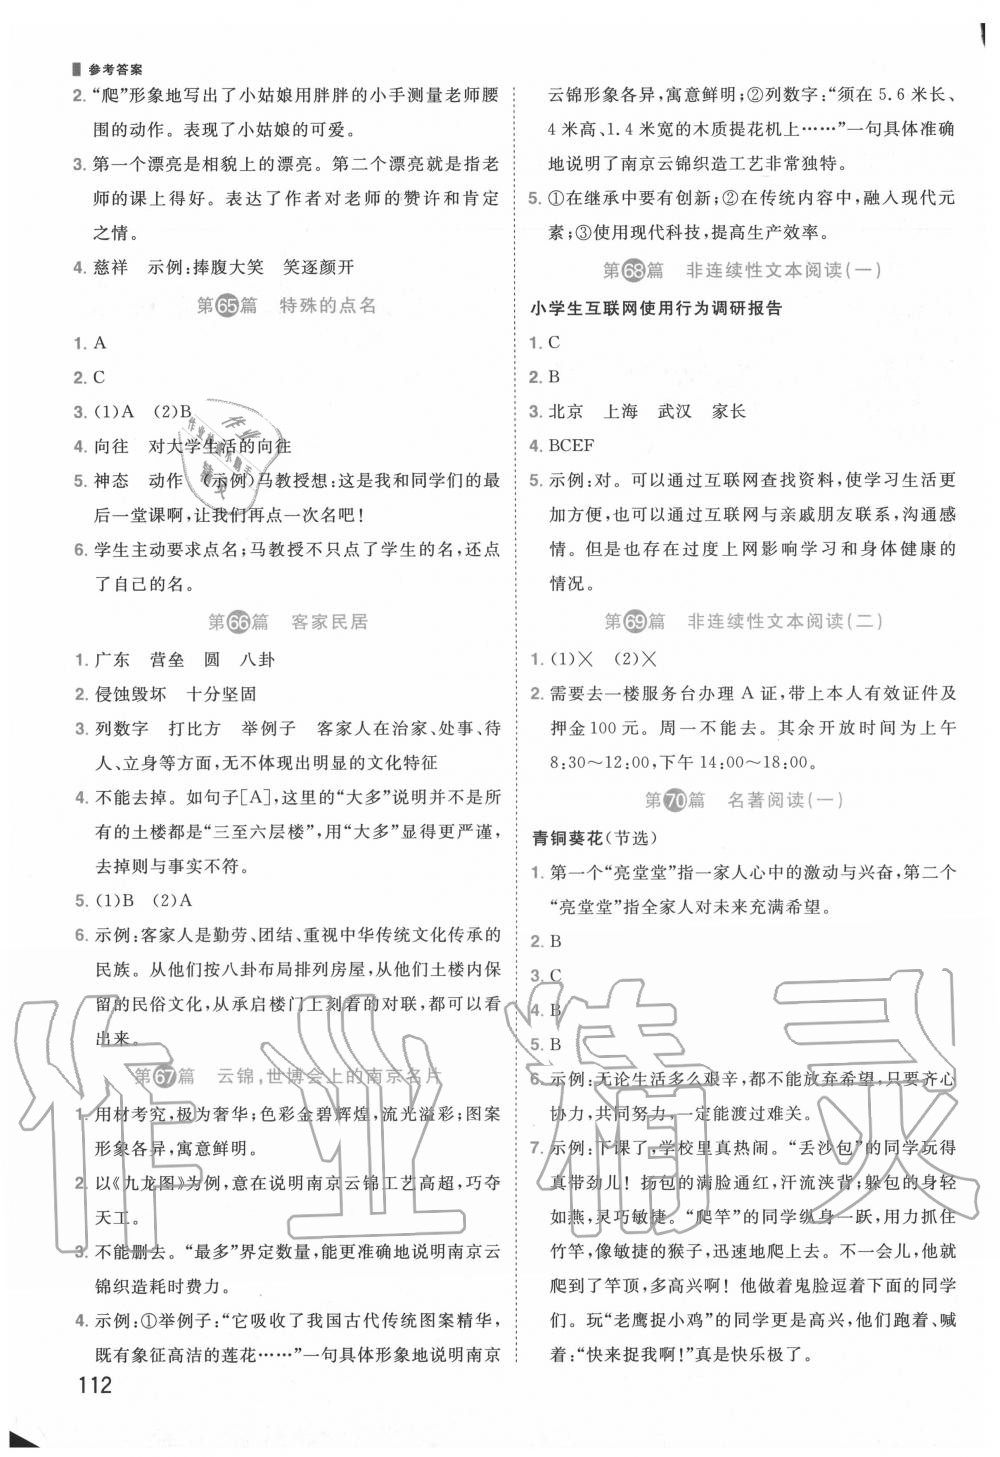 参考答案
2. “爬”形象地写出了小姑娘用胖胖的小手测量老师腰
围的动作。表现了小姑娘的可爱。
3. 第一个漂亮是相貌上的漂亮。第二个漂亮就是指老
师的课上得好。表达了作者对老师的赞许和肯定
之情。
4. 慈祥 示例:捧腹大笑 笑逐颜开
第65篇 特殊的点名
1. A
2. C
3. (1)A (2)B
4. 向往 对大学生活的向往
5. 神态 动作 (示例)马教授想:这是我和同学们的最
后一堂课啊,让我们再点一次名吧!
6. 学生主动要求点名;马教授不只点了学生的名,还点
了自己的名。
第66篇 客家民居
1. 广东 营垒 圆 八卦
2. 侵蚀毁坏 十分坚固
3. 列数字 打比方 举例子 客家人在治家、处事、待
人、立身等方面,无不体现出明显的文化特征
4. 不能去掉。如句子[A],这里的“大多”说明并不是所
有的土楼都是“三至六层楼”,用“大多”显得更严谨,
去掉则与事实不符。
5. (1)B (2)A
6. 示例:客家人是勤劳、团结、重视中华传统文化传承的
民族。从他们按八卦布局排列房屋,从他们土楼内保
留的民俗文化,从承启楼门上刻着的对联,都可以看
出来。
第67篇 云锦,世博会上的南京名片
1. 用材考究,极为奢华;色彩金碧辉煌,流光溢彩;图案
形象各异,寓意鲜明。
2. 以《九龙图》为例,意在说明南京云锦工艺高超,巧夺
天工。
3. 不能删去。“最多”界定数量,能更准确地说明南京云
锦织造耗时费力。
4. 示例:①举例子:“它吸收了我国古代传统图案精华,
既有象征高洁的莲花……”一句具体形象地说明南京
112
云锦形象各异,寓意鲜明;②列数字:“须在5.6米长、
4米高、1.4米宽的木质提花机上……”一句具体准确
地说明了南京云锦织造工艺非常独特。
5. ①在继承中要有创新;②在传统内容中,融入现代元
素;③使用现代科技,提高生产效率。
第68篇 非连续性文本阅读(一)
小学生互联网使用行为调研报告
1. C
2. B
3. 北京 上海 武汉 家长
4. BCEF
5. 示例:对。可以通过互联网查找资料,使学习生活更
加方便,也可以通过互联网与亲戚朋友联系,沟通感
情。但是也存在过度上网影响学习和身体健康的
情况。
第69篇 非连续性文本阅读(二)
1. (1)× (2)×
2. 需要去一楼服务台办理A证,带上本人有效证件及
押金100元。周一不能去。其余开放时间为上午
8:30～12:00,下午14:00～18:00。
第70篇 名著阅读(一)
青铜葵花(节选)
1. 第一个“亮堂堂”指一家人心中的激动与兴奋,第二个
“亮堂堂”指全家人对未来充满希望。
2. B
3. C
4. B
5. B
6. 示例:无论生活多么艰辛,都不能放弃希望,只要齐心
协力,共同努力,一定能渡过难关。
7. 示例:下课了,学校里真热闹。“丢沙包”的同学玩得
真带劲儿!扬包的满脸通红,汗流浃背;躲包的身轻
如燕,灵巧敏捷。“爬竿”的同学纵身一跃,用力抓住
竹竿,像敏捷的猴子,迅速地爬上去。不一会儿,他就
爬到了竿顶,多高兴啊!他做着鬼脸逗着下面的同学
们。玩“老鹰捉小鸡”的同学更是高兴,他们跑着、喊
着:“快来捉我啊!”真是快乐极了。
作业精灵